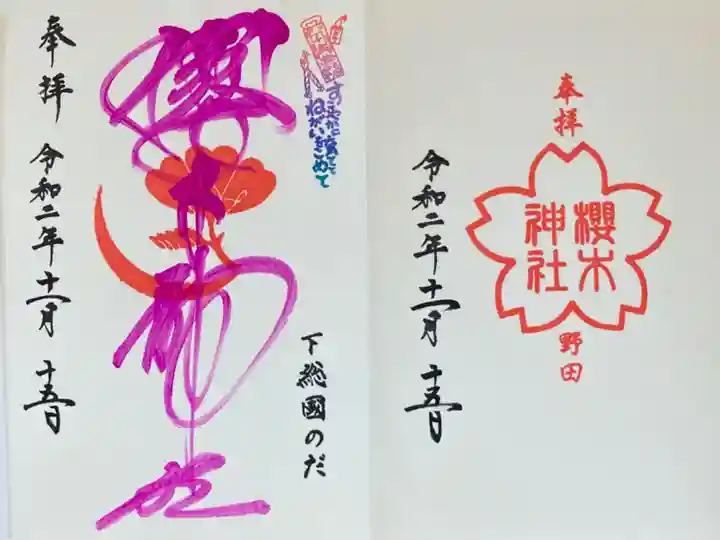 奉拝
令和二年十一月十五日
櫻木神社
ねがいをこめて
下総國のだ
奉拝
櫻木
神社
野田
令和二年十一月十五日